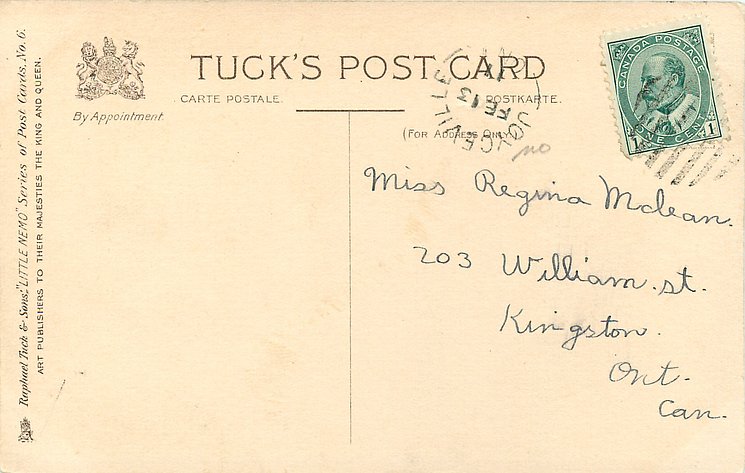 Raphael Tuck & Sons' "LITTLE NEMO" Series of Post Cards, No. 6.
ART PUBLISHERS TO THEIR MAJESTIES THE KING AND QUEEN.
By Appointment.
TUCK'S POST CARD
CARTE POSTALE.
POSTKARTE.
(FOR ADDRESS ONLY)
FE 13
CANADA POSTAGE
1 ONE CENT 1
no
Miss Regina Mclean.
203 William. st.
Kingston.
Ont.
Can.